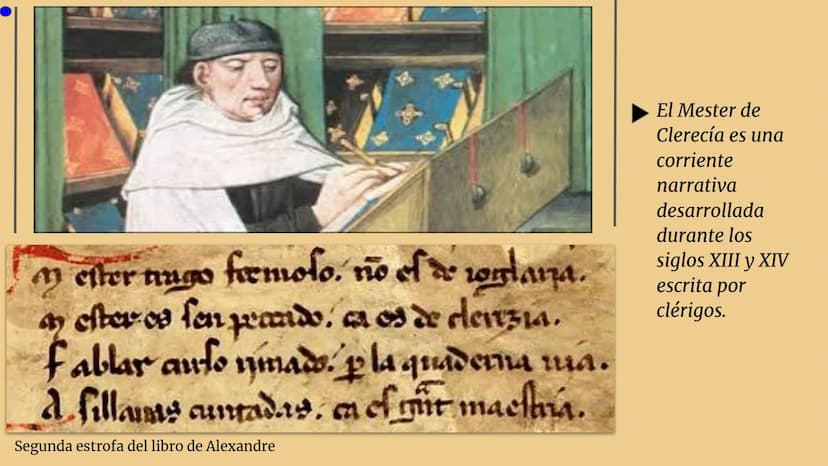 El Mester de
Clerecía es una
corriente
narrativa
desarrollada
durante los
siglos XIII y XIV
escrita por
clérigos.
Mester trago fermoso. nõ es de ioglaria.
Mester es sen peccado. ca es de clerezia.
Fablar curso rimado. ꝑ la quaderna uia.
A sillauas cuntadas. ca es gñt maestria.
Segunda estrofa del libro de Alexandre